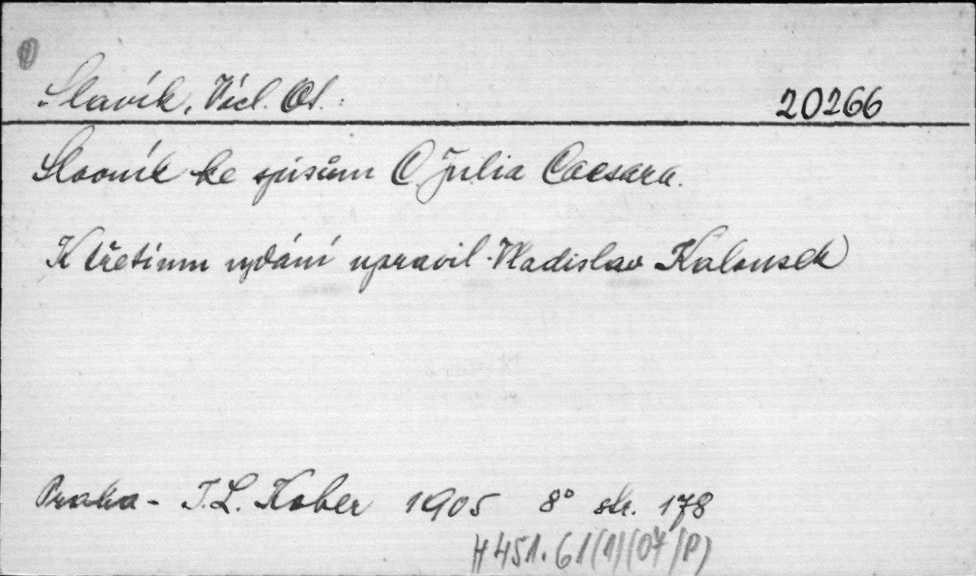 Slavík, Václ. Ot.: 20266
Slovník ke spisům C. Julia Caesara.
K třetímu vydání upravil Vladislav Kalousek
Praha - I. L. Kober 1905 8° str. 178
H 451.61(1)(07)(P)